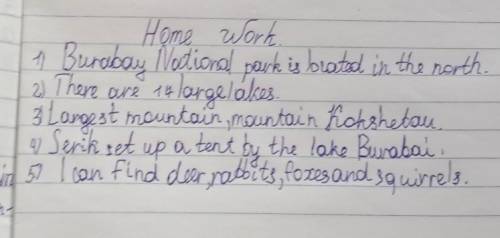 Home Work.
1) Burabay National park is located in the north.
2) There are 14 large lakes.
3) Largest mountain, mountain Kokshetau.
4) Serik set up a tent by the lake Burabai.
5) I can find deer, rabbits, foxes and squirrels.